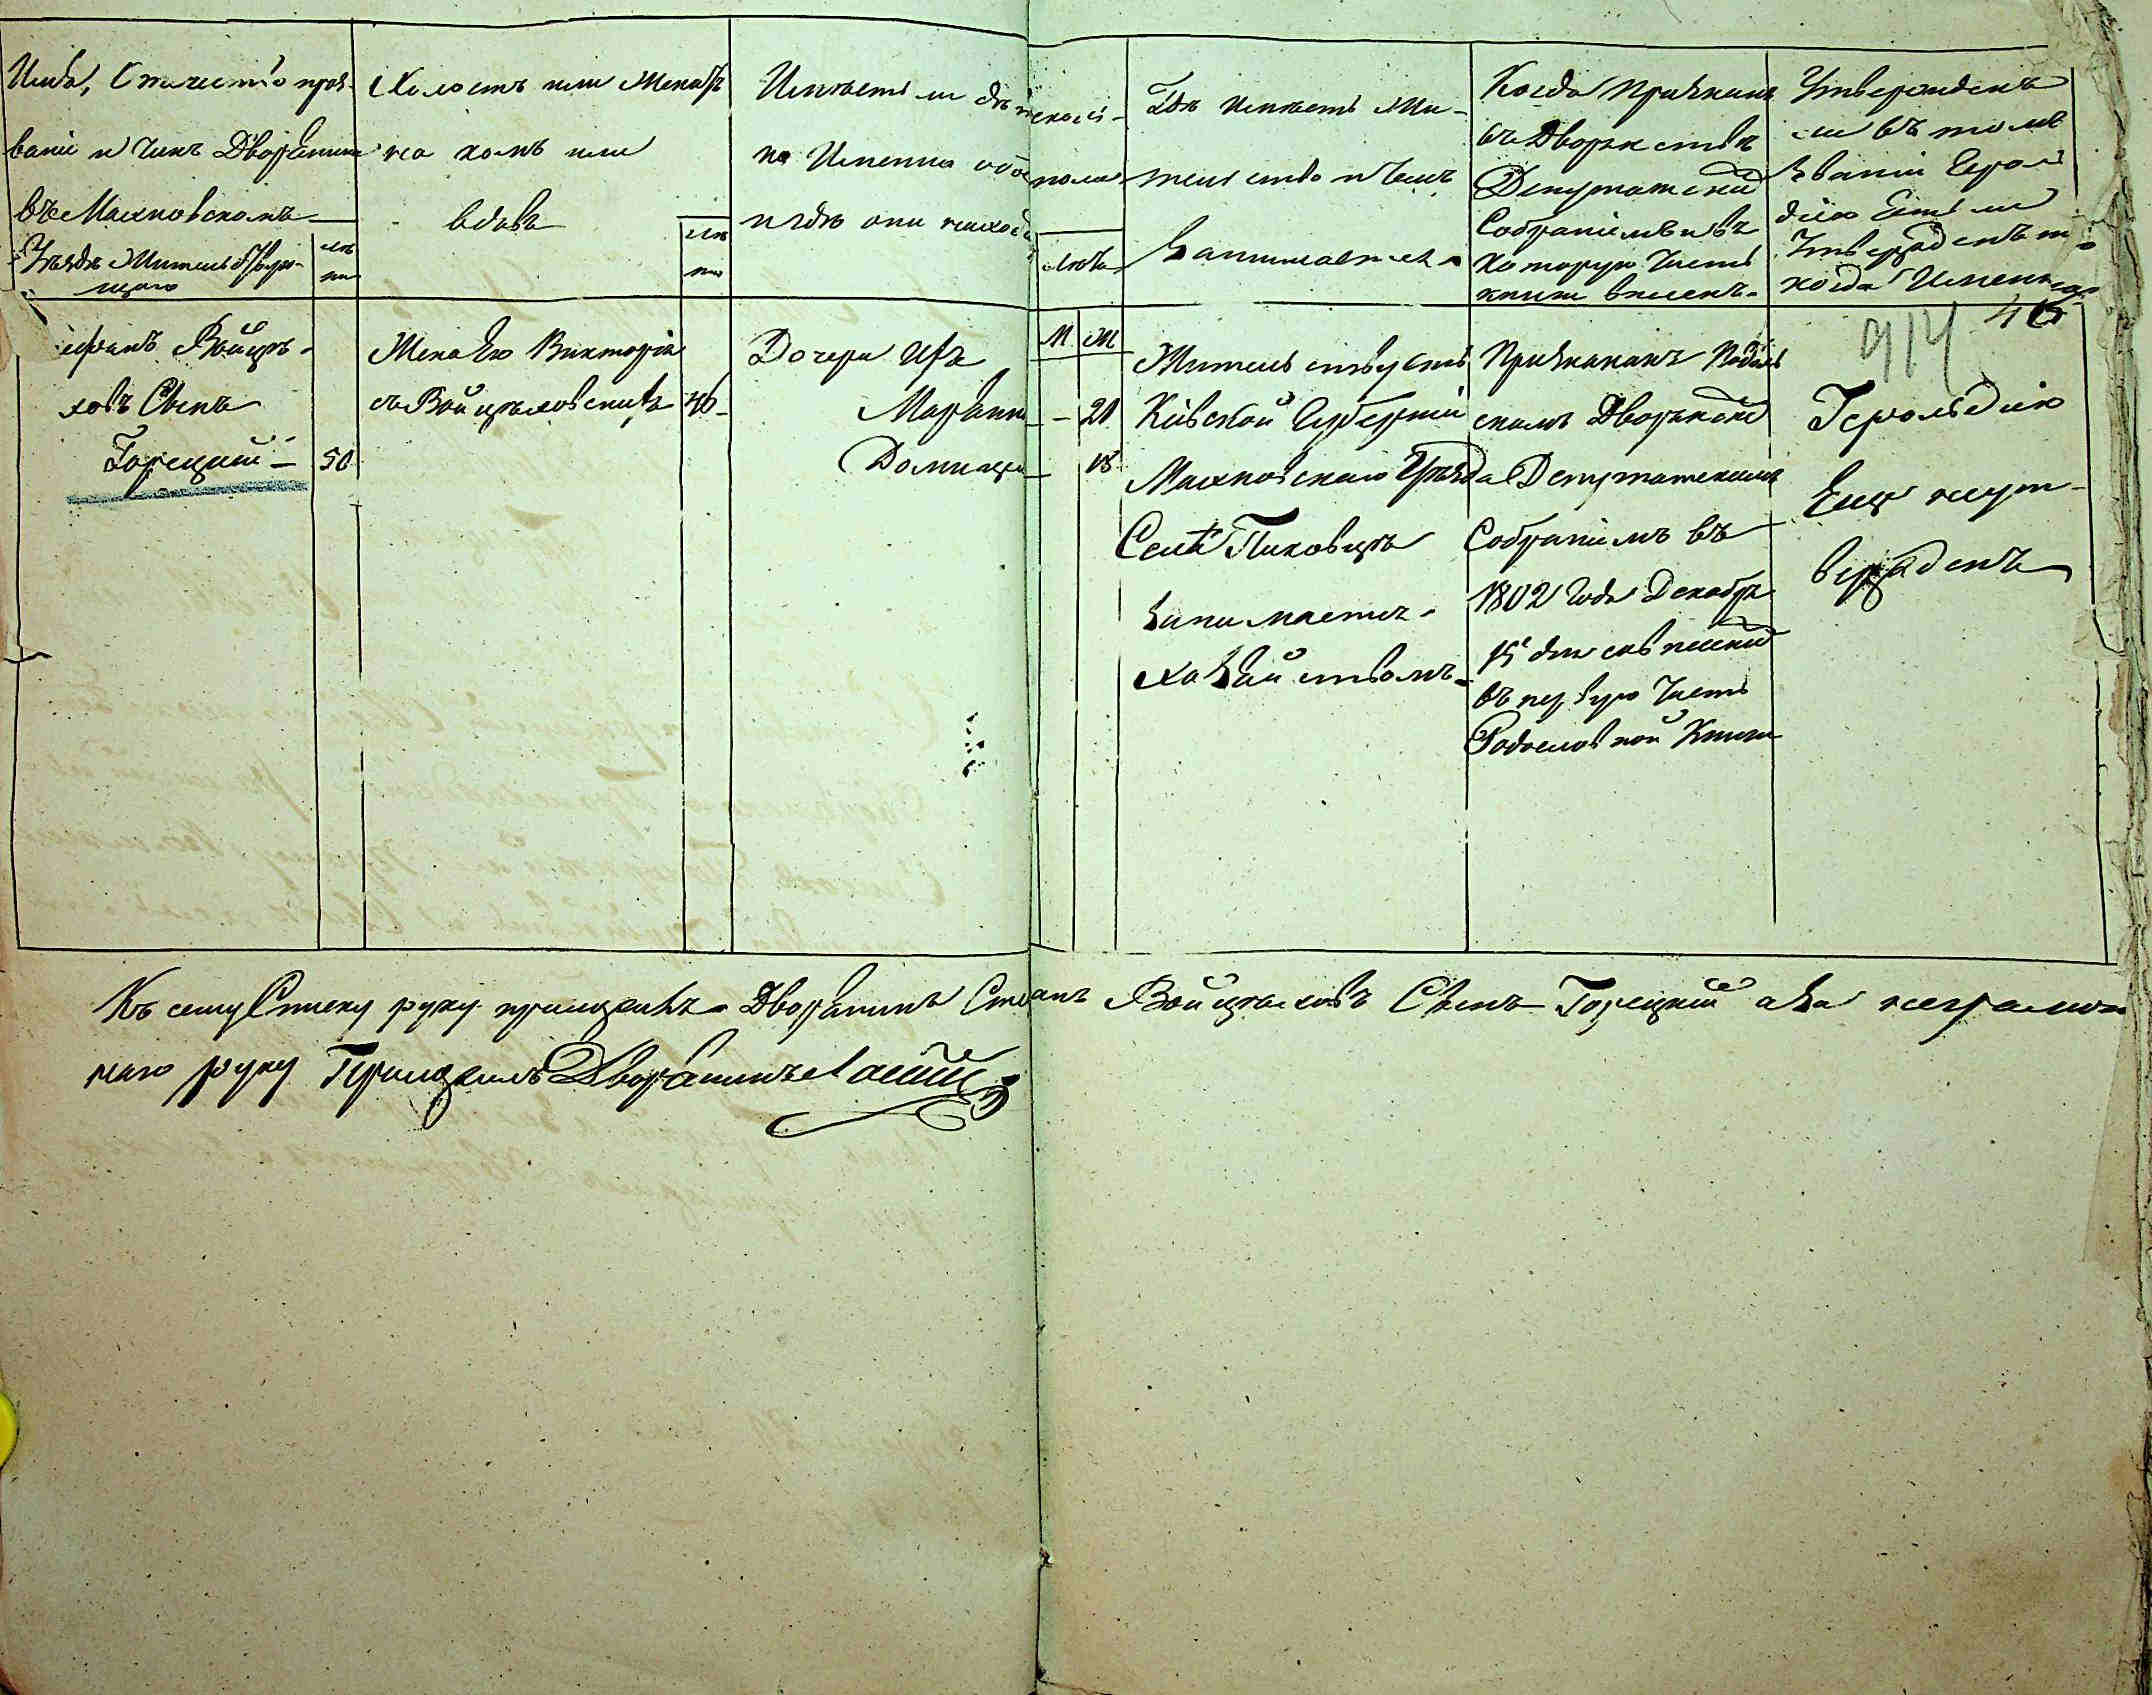 Имя, Отчество проз-
ваніе и Чинъ Дворянина
въ Махновскомъ
Уѣздѣ Жительствую-
щаго
лѣ
та
Холостъ или Женатъ
на комъ или
вдовъ
лѣ
та
Имѣетъ ли дѣтей коликое
по Имянно обоего пола
и гдѣ они находятся
лѣта
Гдѣ Имѣетъ Жи-
тельство и Чемъ
Занимается
Когда Признанъ
въ Дворянствѣ
Депутатскимъ
Собраніемъ и въ
которую Часть
книги внесенъ
Утвержденъ
ли въ томъ
званіи Герол
діею Если
Утвержденъ то
когда Именно
46
914
Стефанъ Войцѣ-
ховъ Сынъ
Горецкій
50
Жена Его Викторія
съ Войцѣховскихъ
46
Дочери Ихъ
Маріанна
Домицеля
М Ж
- 20
18
Жительствуетъ
Кіевской Губерніи
Махновскаго Уѣзда
Селѣ Пиковцѣ
занимается
хозяйствомъ
Признанъ Подоль
скимъ Дворянскимъ
Депутатскимъ
Собраніемъ въ
1802 Года Декабря
15 дня
въ первую Часть
Родословной Книги
Герольдіею
Еще неут-
вержденъ
Къ сему Списку руку приложилъ Дворянинъ Стефанъ Войцѣховъ Сынъ Горецкій а за неграмот
наго руку Приложилъ Дворянинъ